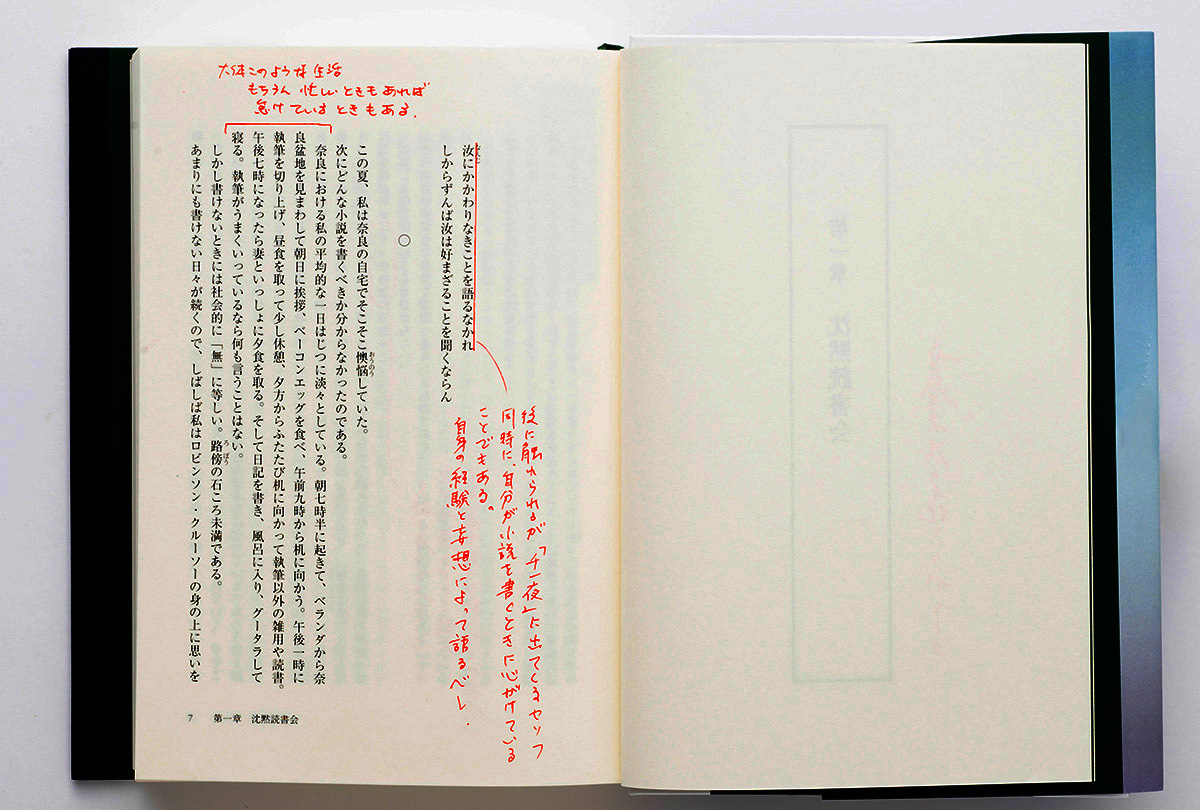 第一章　沈黙読書会
大体このような生活
もちろん忙しいときもあれば
怠けているときもある.
汝にかかわりなきことを語るなかれ
しからずんば汝は好まざることを聞くならん
後に触れられるが「千一夜」に出てくるセリフ
同時に、自分が小説を書くときに心がけている
ことでもある。
自身の経験と妄想によって語るべし.
○
この夏、私は奈良の自宅でそこそこ懊悩していた。
次にどんな小説を書くべきか分からなかったのである。
奈良における私の平均的な一日はじつに淡々としている。朝七時半に起きて、ベランダから奈
良盆地を見まわして朝日に挨拶、ベーコンエッグを食べ、午前九時から机に向かう。午後一時に
執筆を切り上げ、昼食を取って少し休憩、夕方からふたたび机に向かって執筆以外の雑用や読書。
午後七時になったら妻といっしょに夕食を取る。そして日記を書き、風呂に入り、グータラして
寝る。執筆がうまくいっているなら何も言うことはない。
しかし書けないときには社会的に「無」に等しい。路傍の石ころ未満である。
あまりにも書けない日々が続くので、しばしば私はロビンソン・クルーソーの身の上に思いを
7　第一章　沈黙読書会